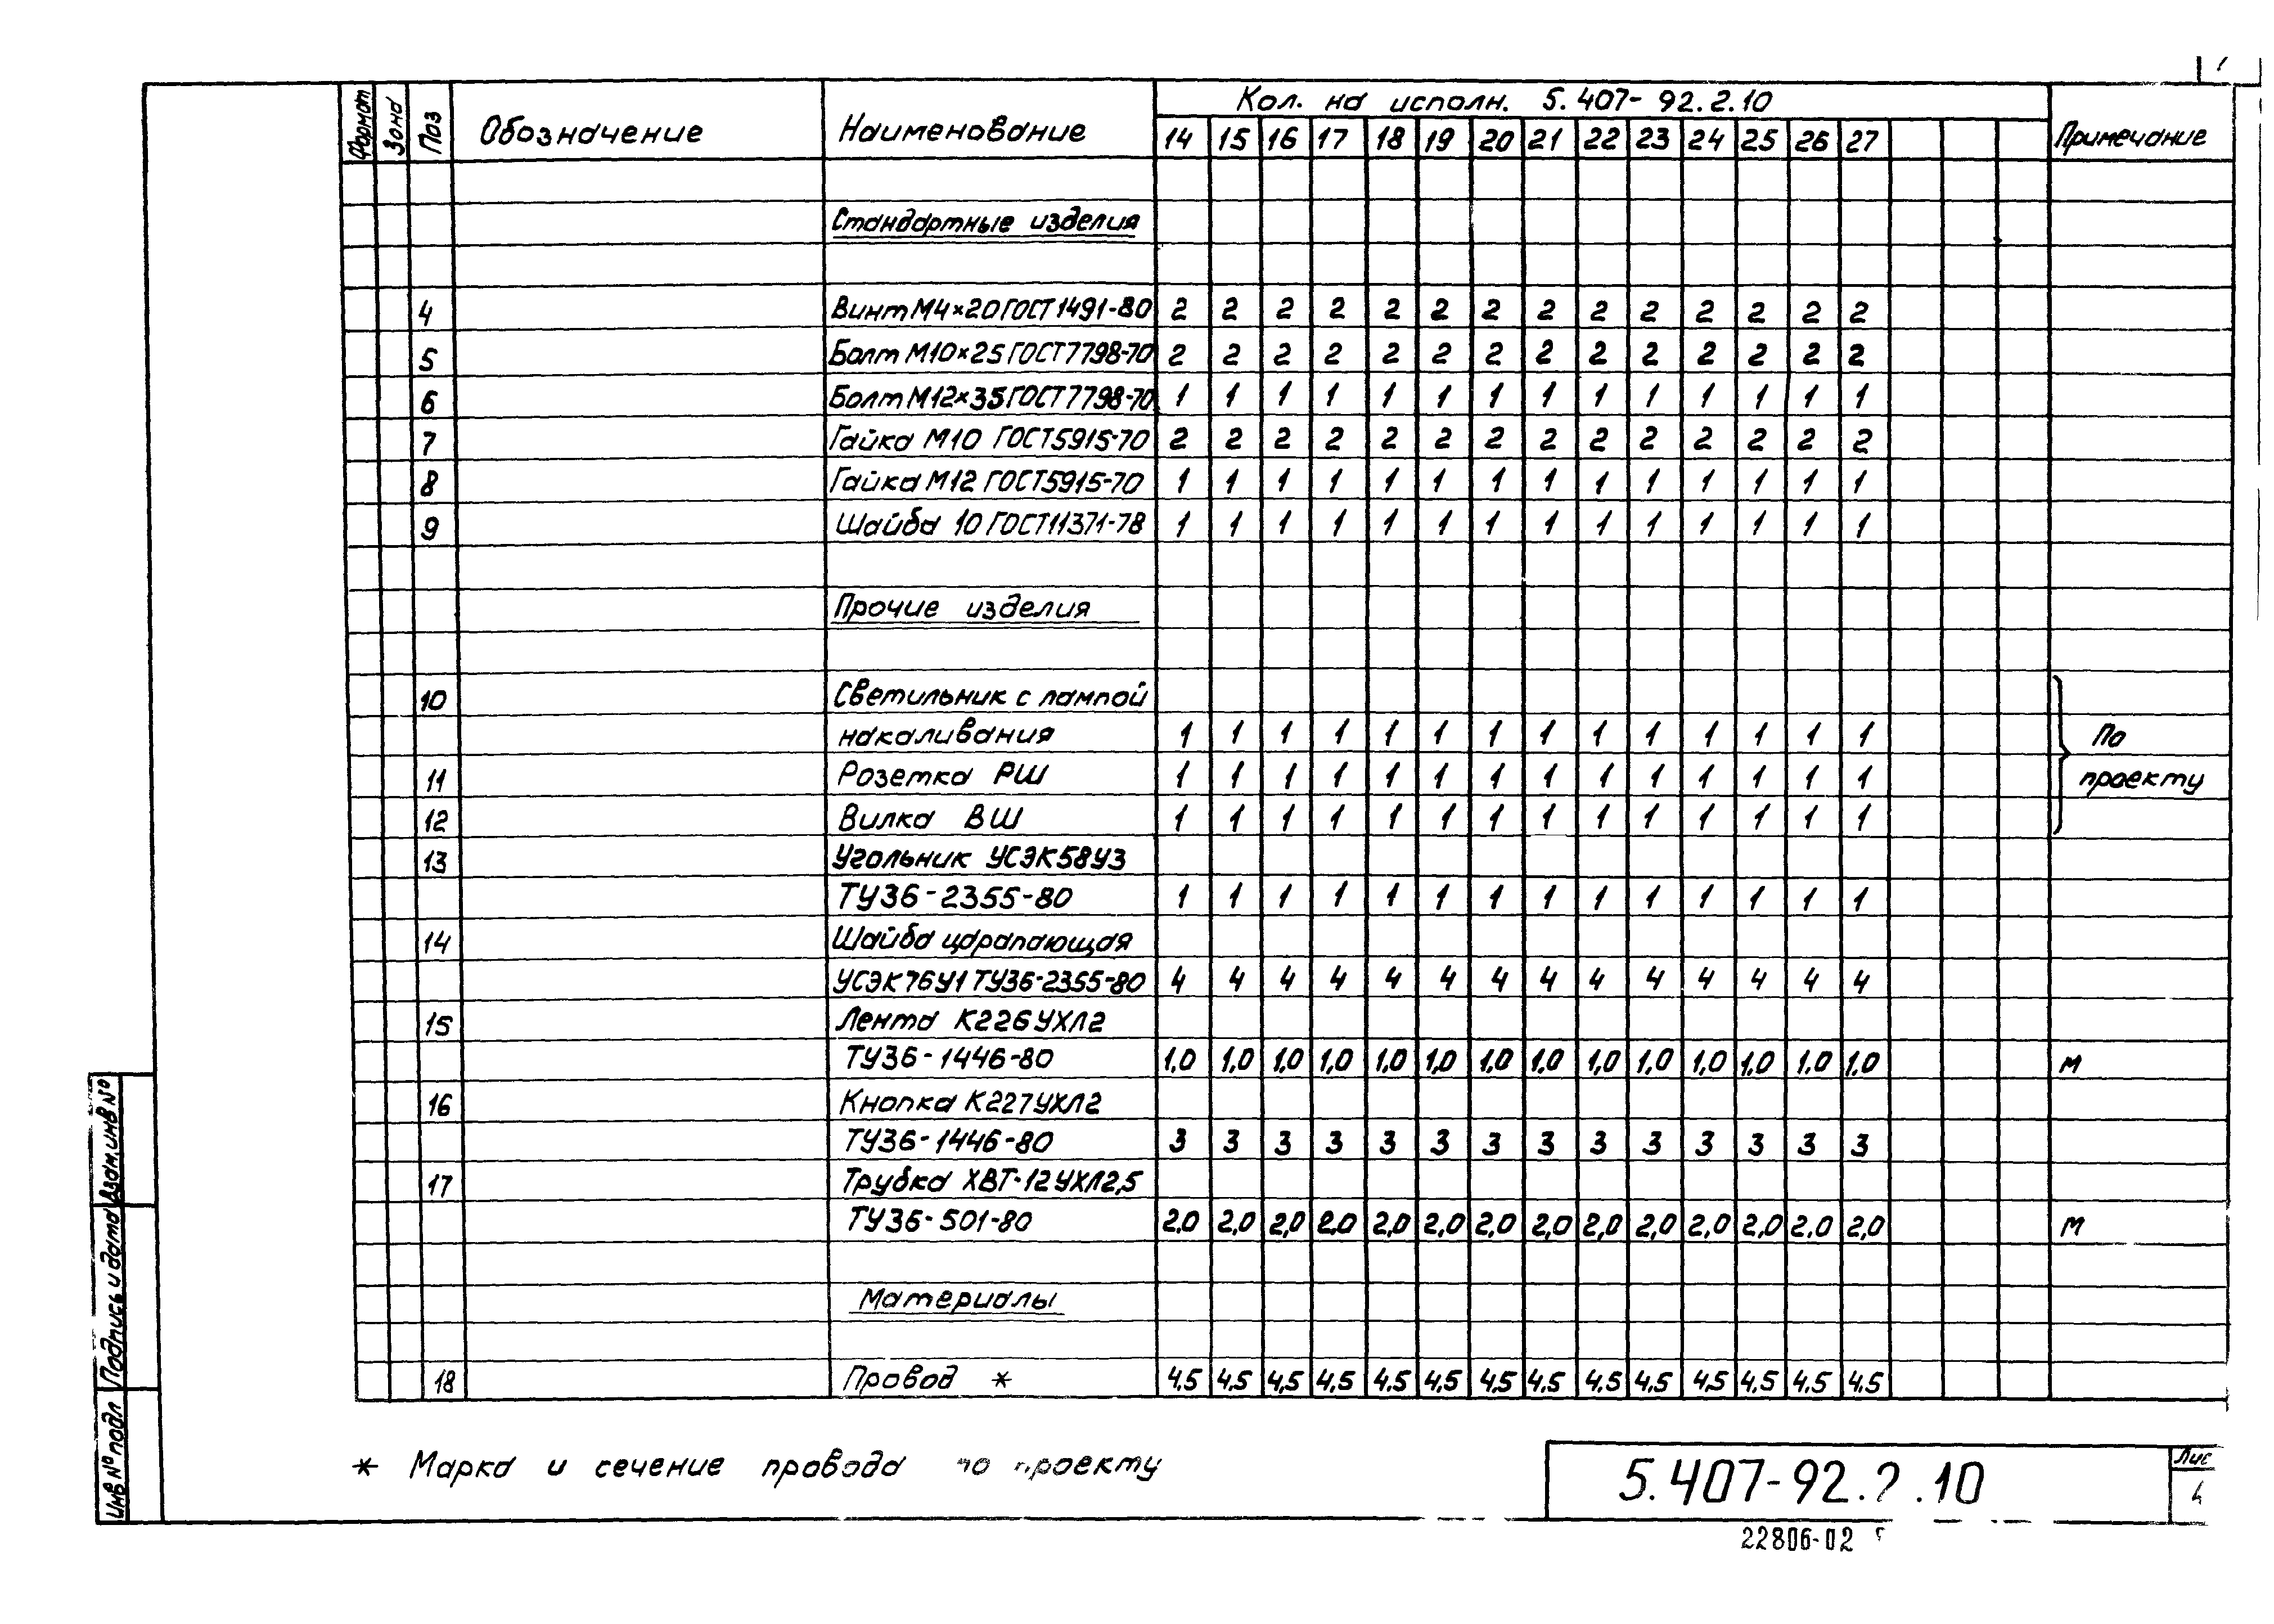 Формат Зона Поз Обозначение Наименование Кол. на исполн. 5.407-92.2.10 Примечание
14 15 16 17 18 19 20 21 22 23 24 25 26 27
Стандартные изделия
4 Винт М4×20 ГОСТ 1491-80 2 2 2 2 2 2 2 2 2 2 2 2 2 2
5 Болт М10×25 ГОСТ 7798-70 2 2 2 2 2 2 2 2 2 2 2 2 2 2
6 Болт М12×35 ГОСТ 7798-70 1 1 1 1 1 1 1 1 1 1 1 1 1 1
7 Гайка М10 ГОСТ 5915-70 2 2 2 2 2 2 2 2 2 2 2 2 2 2
8 Гайка М12 ГОСТ 5915-70 1 1 1 1 1 1 1 1 1 1 1 1 1 1
9 Шайба 10 ГОСТ 11371-78 1 1 1 1 1 1 1 1 1 1 1 1 1 1
Прочие изделия
10 Светильник с лампой
накаливания 1 1 1 1 1 1 1 1 1 1 1 1 1 1 По
11 Розетка РШ 1 1 1 1 1 1 1 1 1 1 1 1 1 1 проекту
12 Вилка ВШ 1 1 1 1 1 1 1 1 1 1 1 1 1 1
13 Угольник УСЭК58У3
ТУ36-2355-80 1 1 1 1 1 1 1 1 1 1 1 1 1 1
14 Шайба царапающая
УСЭК76У1 ТУ36-2355-80 4 4 4 4 4 4 4 4 4 4 4 4 4 4
15 Лента К226УХЛ2
ТУ36-1446-80 1,0 1,0 1,0 1,0 1,0 1,0 1,0 1,0 1,0 1,0 1,0 1,0 1,0 1,0 м
16 Кнопка К227УХЛ2
ТУ36-1446-80 3 3 3 3 3 3 3 3 3 3 3 3 3 3
17 Трубка ХВТ-12УХЛ2,5
ТУ36-501-80 2,0 2,0 2,0 2,0 2,0 2,0 2,0 2,0 2,0 2,0 2,0 2,0 2,0 2,0 м
Материалы
18 Провод * 4,5 4,5 4,5 4,5 4,5 4,5 4,5 4,5 4,5 4,5 4,5 4,5 4,5 4,5
* Марка и сечение провода по проекту
Инв № подл Подпись и дата Взам. инв №
5.407-92.2.10
Лис
4
22806-02